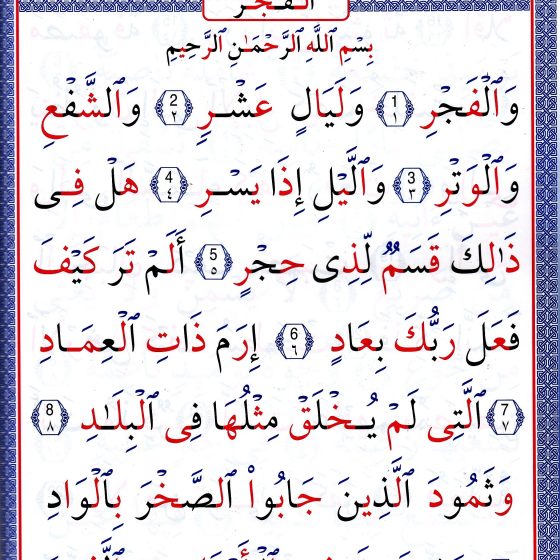 الفجر
بِسْمِ اللَّهِ الرَّحْمَٰنِ الرَّحِيمِ
وَٱلْفَجْرِ 1 ١ وَلَيَالٍ عَشْرٍ 2 ٢ وَٱلشَّفْعِ
وَٱلْوَتْرِ 3 ٣ وَٱلَّيْلِ إِذَا يَسْرِ 4 ٤ هَلْ فِى
ذَٰلِكَ قَسَمٌ لِّذِى حِجْرٍ 5 ٥ أَلَمْ تَرَ كَيْفَ
فَعَلَ رَبُّكَ بِعَادٍ 6 ٦ إِرَمَ ذَاتِ ٱلْعِمَادِ
7 ٧ ٱلَّتِى لَمْ يُخْلَقْ مِثْلُهَا فِى ٱلْبِلَٰدِ 8 ٨
وَثَمُودَ ٱلَّذِينَ جَابُوا۟ ٱلصَّخْرَ بِٱلْوَادِ